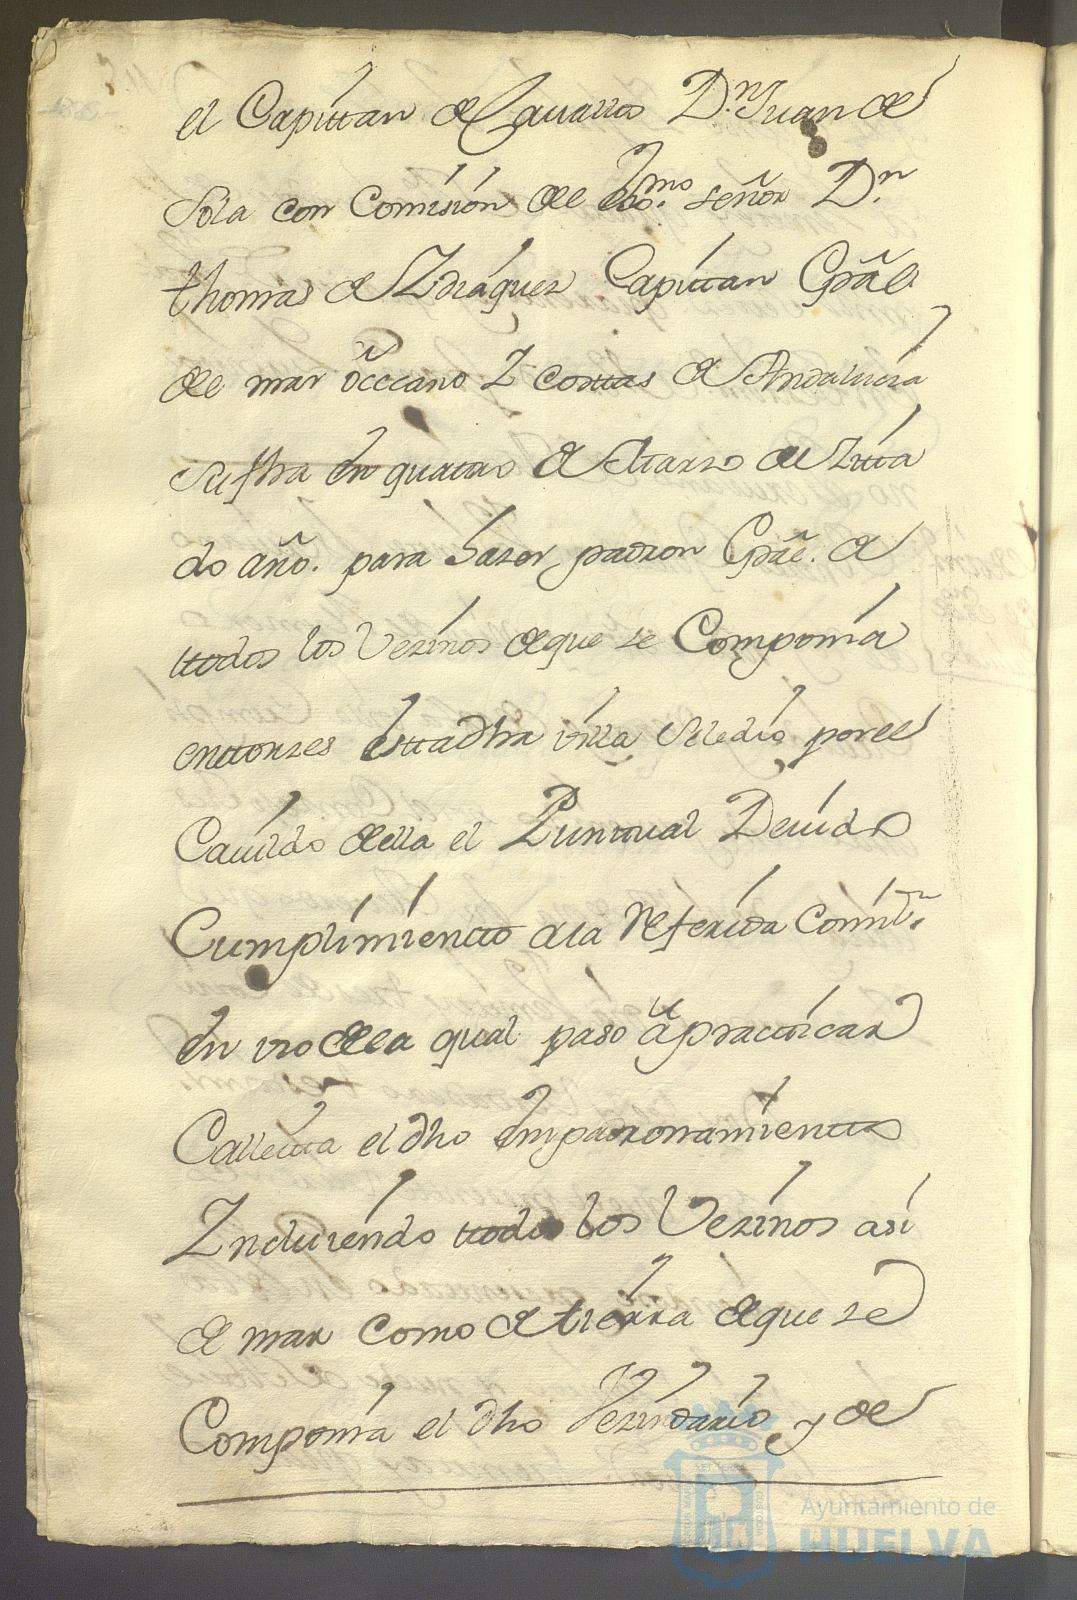 el Capittan de Cavallos D.n Juan de
Sola con Comisión de el Exmo. señor D.n
thomas de Ydiáquez Capittan Gral
de mar occeano y costtas de Andalucía
su fha en quattro de Marzo de zitta
do año. para hazer padron Gral. de
ttodos los Vezinos de que se Componía
enttonzes esttadha villa Seledió por el
Cavildo de ella el Punttual Devido
Cumplimientto a la Referida Comis.n
En vso de la qual paso a practticar
Callehita el dho Empadronamientto
Yncluiendo ttodos los Vezinos asi
de mar como de tierra de que se
Componía el dho Vezindario, y de
Ayuntamiento de
HUELVA